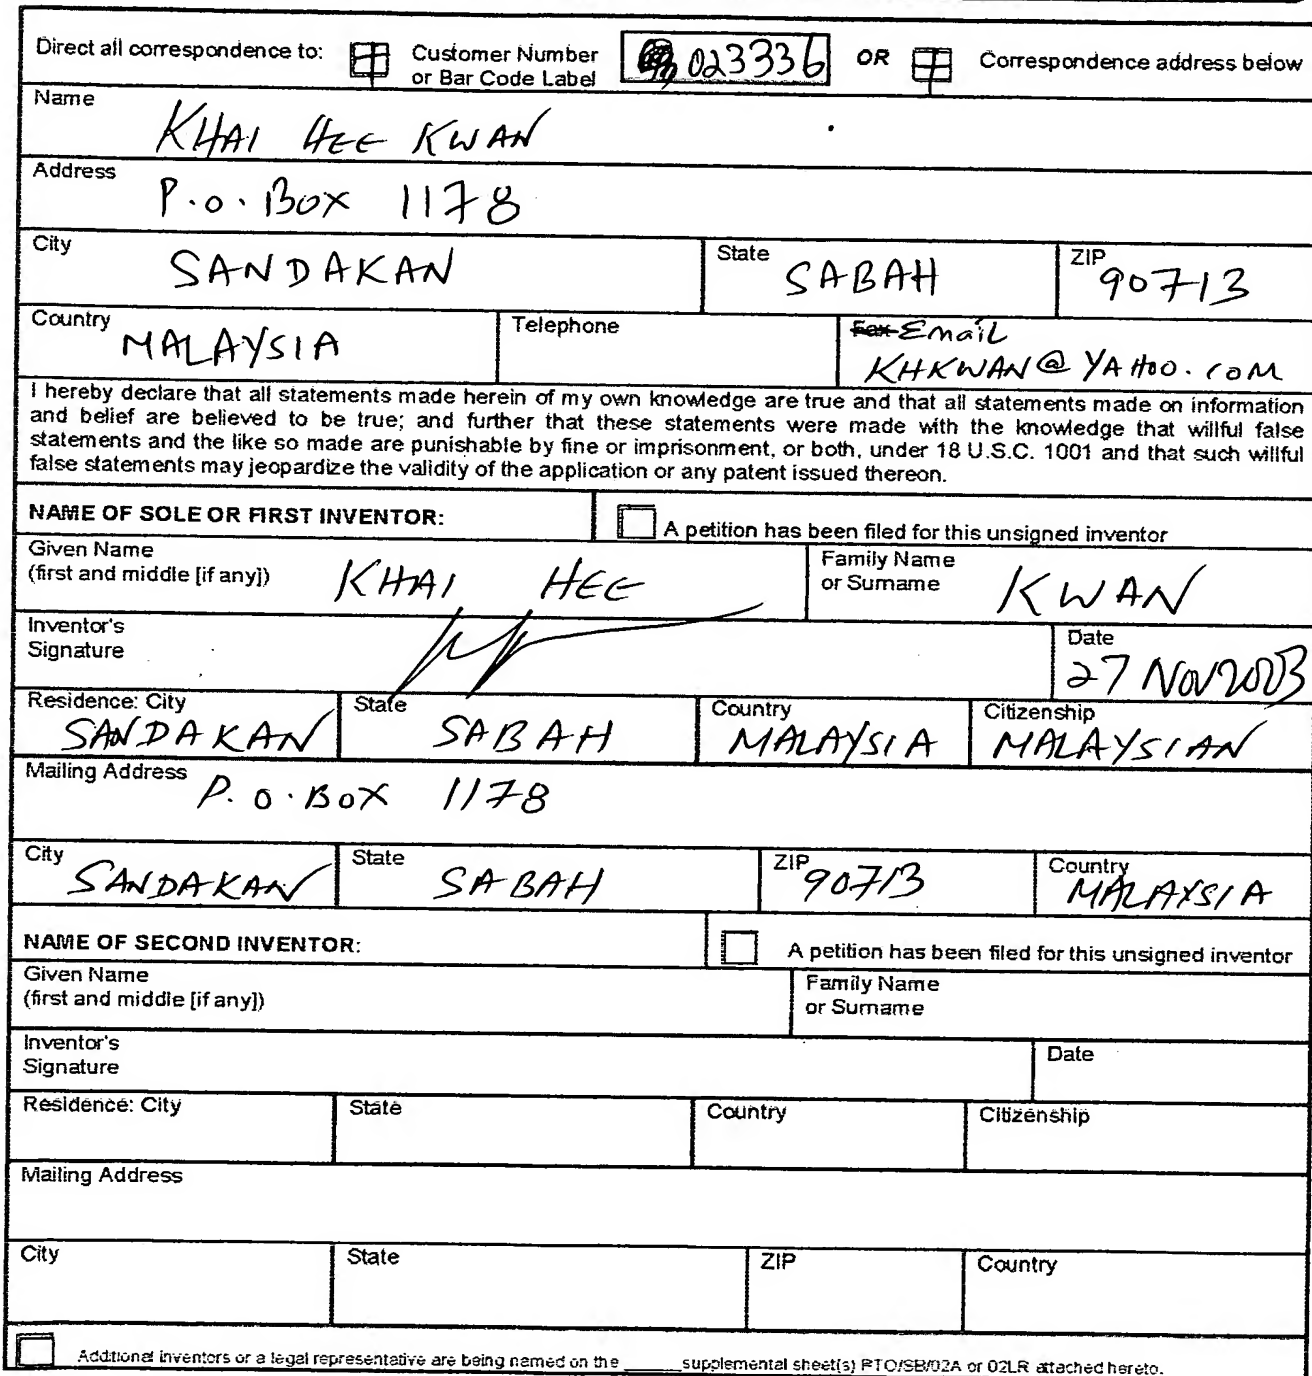 Direct all correspondence to: Customer Number or Bar Code Label 023336 OR Correspondence address below
Name
KHAI HEE KWAN
Address
P.O. BOX 1178
City SANDAKAN State SABAH ZIP 90713
Country MALAYSIA Telephone Fax Email KHKWAN@YAHOO.COM
I hereby declare that all statements made herein of my own knowledge are true and that all statements made on information
and belief are believed to be true; and further that these statements were made with the knowledge that willful false
statements and the like so made are punishable by fine or imprisonment, or both, under 18 U.S.C. 1001 and that such willful
false statements may jeopardize the validity of the application or any patent issued thereon.
NAME OF SOLE OR FIRST INVENTOR: A petition has been filed for this unsigned inventor
Given Name
(first and middle [if any]) KHAI HEE Family Name
or Surname KWAN
Inventor's
Signature Date
27 Nov 2003
Residence: City SANDAKAN State SABAH Country MALAYSIA Citizenship MALAYSIAN
Mailing Address P.O. BOX 1178
City SANDAKAN State SABAH ZIP 90713 Country MALAYSIA
NAME OF SECOND INVENTOR: A petition has been filed for this unsigned inventor
Given Name
(first and middle [if any]) Family Name
or Surname
Inventor's
Signature Date
Residence: City State Country Citizenship
Mailing Address
City State ZIP Country
Additional inventors or a legal representative are being named on the ______supplemental sheet(s) PTO/SB/02A or 02LR attached hereto.